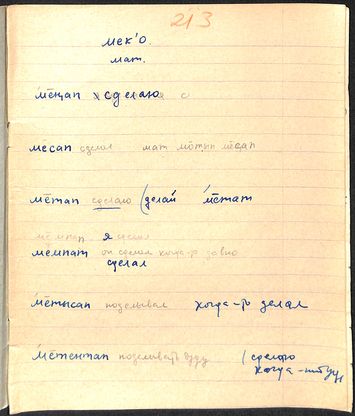 213
мек'о.
мат.
ме̄ӈап сделаю
ме̄сап сделал мат мōтып ме̄сап
ме̄тап сделаю (делай ме̄тат
я сделал
мемпат он сделал когда-то давно
сделал
ме̄тысап поделывал когда-то делал
ме̄тентап поделывать буду (сделаю
когда-нибудь